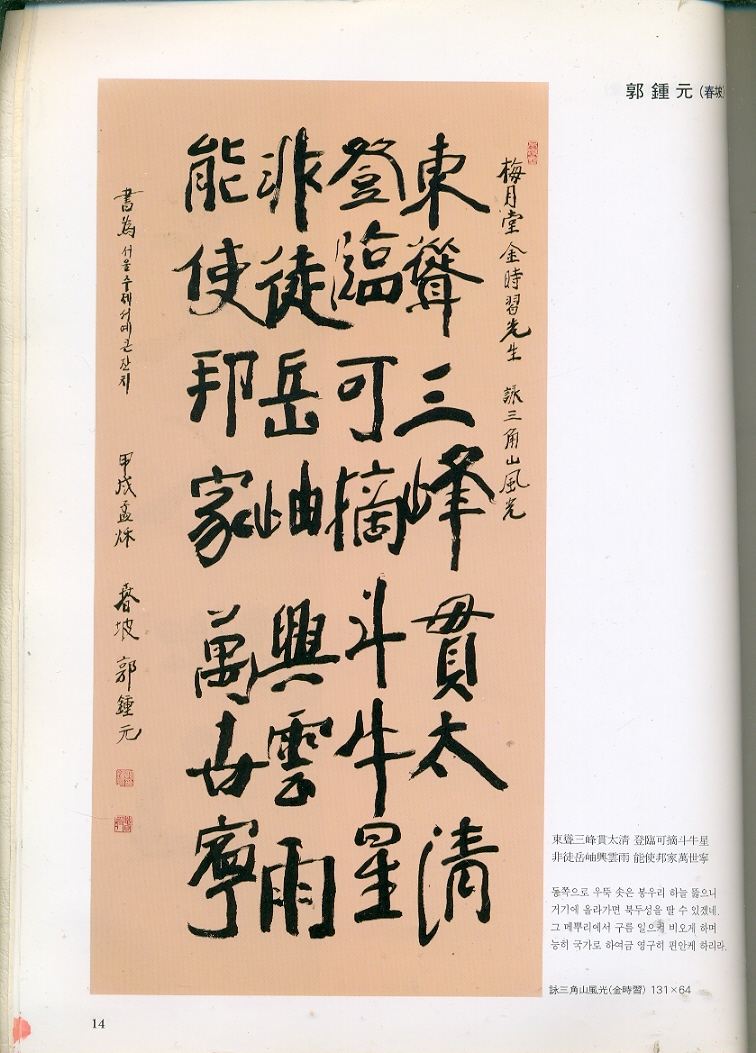 郭鍾元 (春坡)
梅月堂金時習先生 詠三角山風光
東聳三峰貫太清
登臨可摘斗牛星
非徒岳岫興雲雨
能使邦家萬世寧
書爲 서울주제서예큰잔치 甲戌孟秌 春坡 郭鍾元
東聳三峰貫太清 登臨可摘斗牛星
非徒岳岫興雲雨 能使邦家萬世寧
동쪽으로 우뚝 솟은 봉우리 하늘 뚫으니
거기에 올라가면 북두성을 딸 수 있겠네.
그 메뿌리에서 구름 일으켜 비오게 하며
능히 국가로 하여금 영구히 편안케 하리라.
詠三角山風光(金時習) 131×64
14